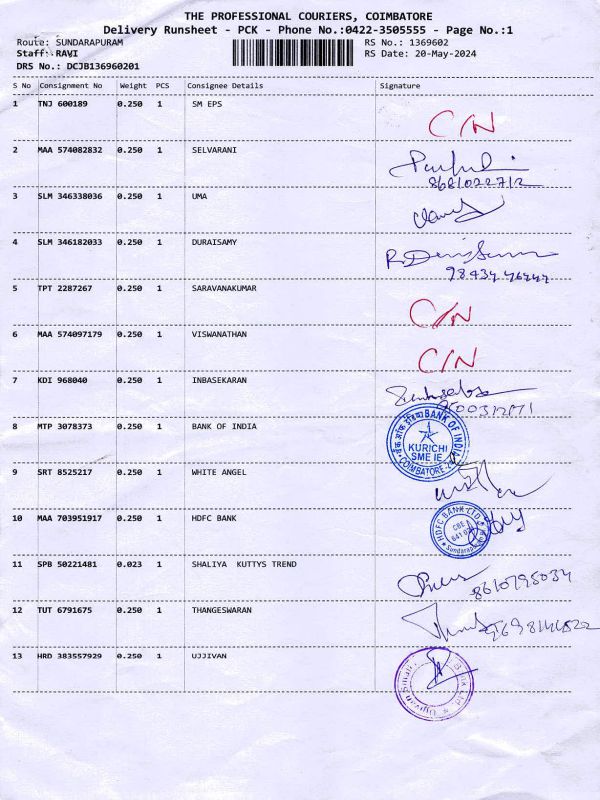 THE PROFESSIONAL COURIERS, COIMBATORE
Delivery Runsheet - PCK - Phone No.:0422-3505555 - Page No.:1
Route: SUNDARAPURAM RS No.: 1369602
Staff: RAVI RS Date: 20-May-2024
DRS No.: DCJB136960201
S No Consignment No Weight PCS Consignee Details Signature
1 TNJ 600189 0.250 1 SM EPS
C/N
2 MAA 574082832 0.250 1 SELVARANI
3 SLM 346338036 0.250 1 UMA
4 SLM 346182033 0.250 1 DURAISAMY
5 TPT 2287267 0.250 1 SARAVANAKUMAR
C/N
6 MAA 574097179 0.250 1 VISWANATHAN
C/N
7 KDI 968040 0.250 1 INBASEKARAN
8 MTP 3078373 0.250 1 BANK OF INDIA
BANK OF INDIA
KURICHI
SME IE
COIMBATORE
9 SRT 8525217 0.250 1 WHITE ANGEL
10 MAA 703951917 0.250 1 HDFC BANK
HDFC BANK LTD
CBE
11 SPB 50221481 0.023 1 SHALIYA KUTTYS TREND
8610795034
12 TUT 6791675 0.250 1 THANGESWARAN
13 HRD 383557929 0.250 1 UJJIVAN